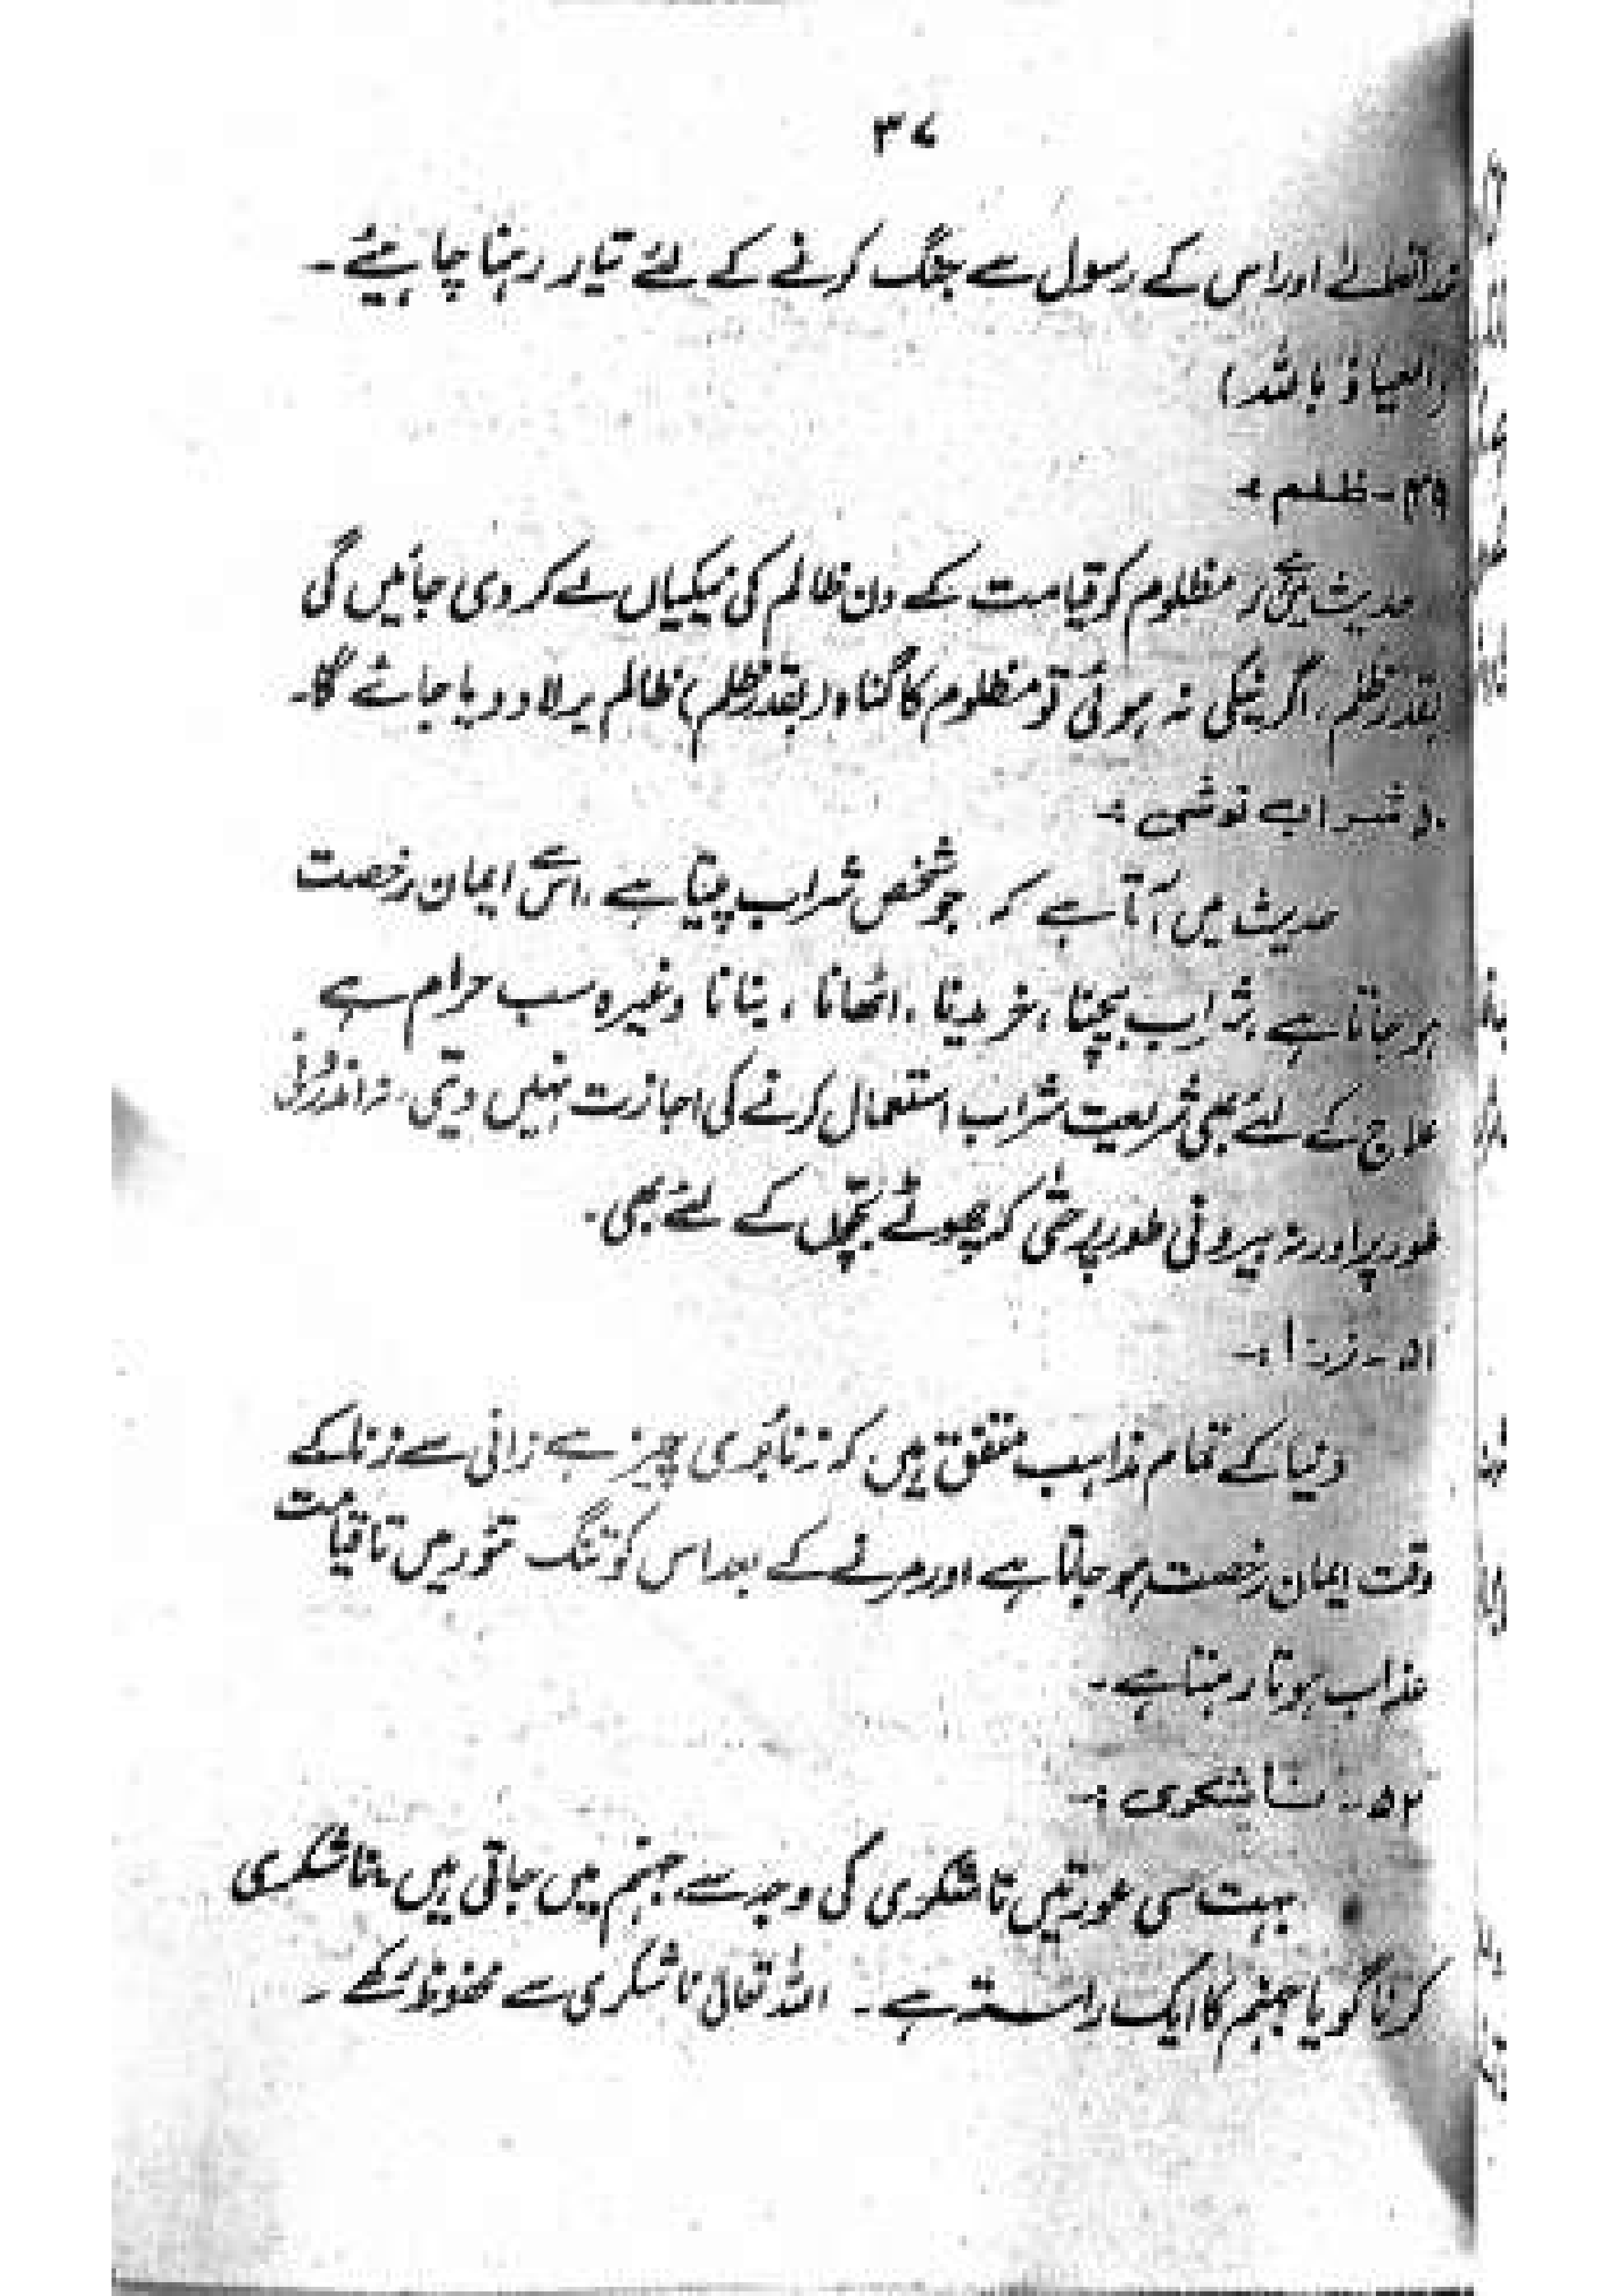 ۳۷
خدا تعالےٰ اور اس کے رسول سے جنگ کرنے کے لئے تیار رہنا چاہیئے۔
(العیاذ باللہ)
۴۹- ظلم :-
حدیث میں ہے کہ مظلوم کو قیامت کے دن ظالم کی نیکیاں لے کر دی جائیں گی
بقدر ظلم، اگر نیکی نہ ہوئی تو مظلوم کا گناہ (بقدر ظلم) ظالم پر لاد دیا جائے گا۔
۵۰ شراب نوشی :-
حدیث میں آتا ہے کہ جو شخص شراب پیتا ہے، اس سے ایمان رخصت
ہو جاتا ہے، شراب بیچنا، خریدنا، اٹھانا، بنانا وغیرہ سب حرام ہے
علاج کے لئے بھی شریعت شراب استعمال کرنے کی اجازت نہیں دیتی، نہ اندرونی
طور پر اور نہ بیرونی طور پر حتیٰ کہ چھوٹے بچوں کے لئے بھی۔
۵۱- زنا :-
دنیا کے تمام مذاہب متفق ہیں کہ زنا بُری چیز ہے زانی سے زنا کے
وقت ایمان رخصت ہو جاتا ہے اور مرنے کے بعد اس کو تنگ تنور میں تا قیامت
عذاب ہوتا رہتا ہے۔
۵۲- ناشکری :-
بہت سی عورتیں ناشکری کی وجہ سے جہنم میں جاتی ہیں۔ ناشکری
کرنا گویا جہنم کا ایک راستہ ہے۔ اللہ تعالیٰ ناشکری سے محفوظ رکھے۔